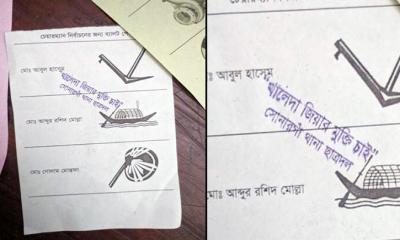 চেয়ারম্যান নির্বাচনের জন্য ব্যালট পে
মোঃ আবুল হাসেম
"খালেদা জিয়ার মুক্তি চাই"
সোনারগাঁ থানা ছাত্রদল
মোঃ আব্দুর রশিদ মোল্লা
মোঃ গোলাম মোস্তফা
ঃ আবুল হাসেম
"খালেদা জিয়ার মুক্তি চাই"
সোনারগাঁ থানা ছাত্রদল
মোঃ আব্দুর রশিদ মোল্লা